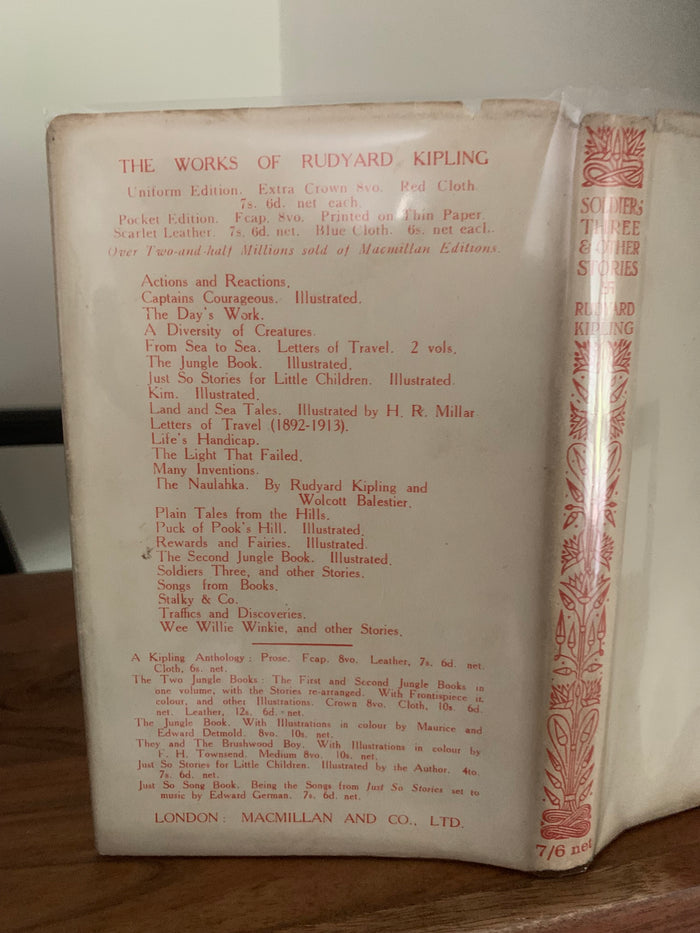 THE WORKS OF RUDYARD KIPLING
Uniform Edition. Extra Crown 8vo. Red Cloth.
7s. 6d. net each.
Pocket Edition. Fcap. 8vo. Printed on Thin Paper.
Scarlet Leather. 7s. 6d. net. Blue Cloth. 6s. net each.
Over Two-and-half Millions sold of Macmillan Editions.
Actions and Reactions.
Captains Courageous. Illustrated.
The Day's Work.
A Diversity of Creatures.
From Sea to Sea. Letters of Travel. 2 vols.
The Jungle Book. Illustrated.
Just So Stories for Little Children. Illustrated.
Kim. Illustrated.
Land and Sea Tales. Illustrated by H. R. Millar
Letters of Travel (1892-1913).
Life's Handicap.
The Light That Failed.
Many Inventions.
The Naulahka. By Rudyard Kipling and
Wolcott Balestier.
Plain Tales from the Hills.
Puck of Pook's Hill. Illustrated.
Rewards and Fairies. Illustrated.
The Second Jungle Book. Illustrated.
Soldiers Three, and other Stories.
Songs from Books.
Stalky & Co.
Traffics and Discoveries.
Wee Willie Winkie, and other Stories.
A Kipling Anthology: Prose. Fcap. 8vo. Leather, 7s. 6d. net.
Cloth, 6s. net.
The Two Jungle Books: The First and Second Jungle Books in
one volume, with the Stories re-arranged. With Frontispiece in
colour, and other Illustrations. Crown 8vo. Cloth, 10s. 6d.
net. Leather, 12s. 6d. net.
The Jungle Book. With Illustrations in colour by Maurice and
Edward Detmold. 8vo. 10s. net.
They and The Brushwood Boy. With Illustrations in colour by
F. H. Townsend. Medium 8vo. 10s. net.
Just So Stories for Little Children. Illustrated by the Author. 4to.
7s. 6d. net.
Just So Song Book. Being the Songs from Just So Stories set to
music by Edward German. 7s. 6d. net.
LONDON: MACMILLAN AND CO., LTD.
SOLDIERS
THREE
& OTHER
STORIES
RUDYARD
KIPLING
7/6 net